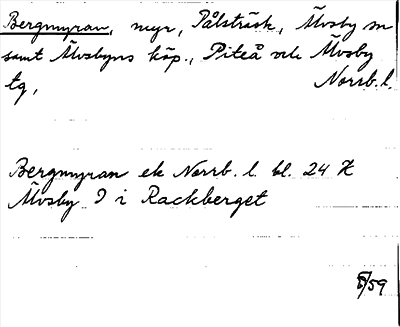 Bergmyran, myr, Pålsträsk, Älvsby sn
samt Älvsbyns köp., Piteå och Älvsby
tg, Norrb. l.
Bergmyran ek Norrb. l. bl. 24 H
Älvsby 9 i Rackberget
/59